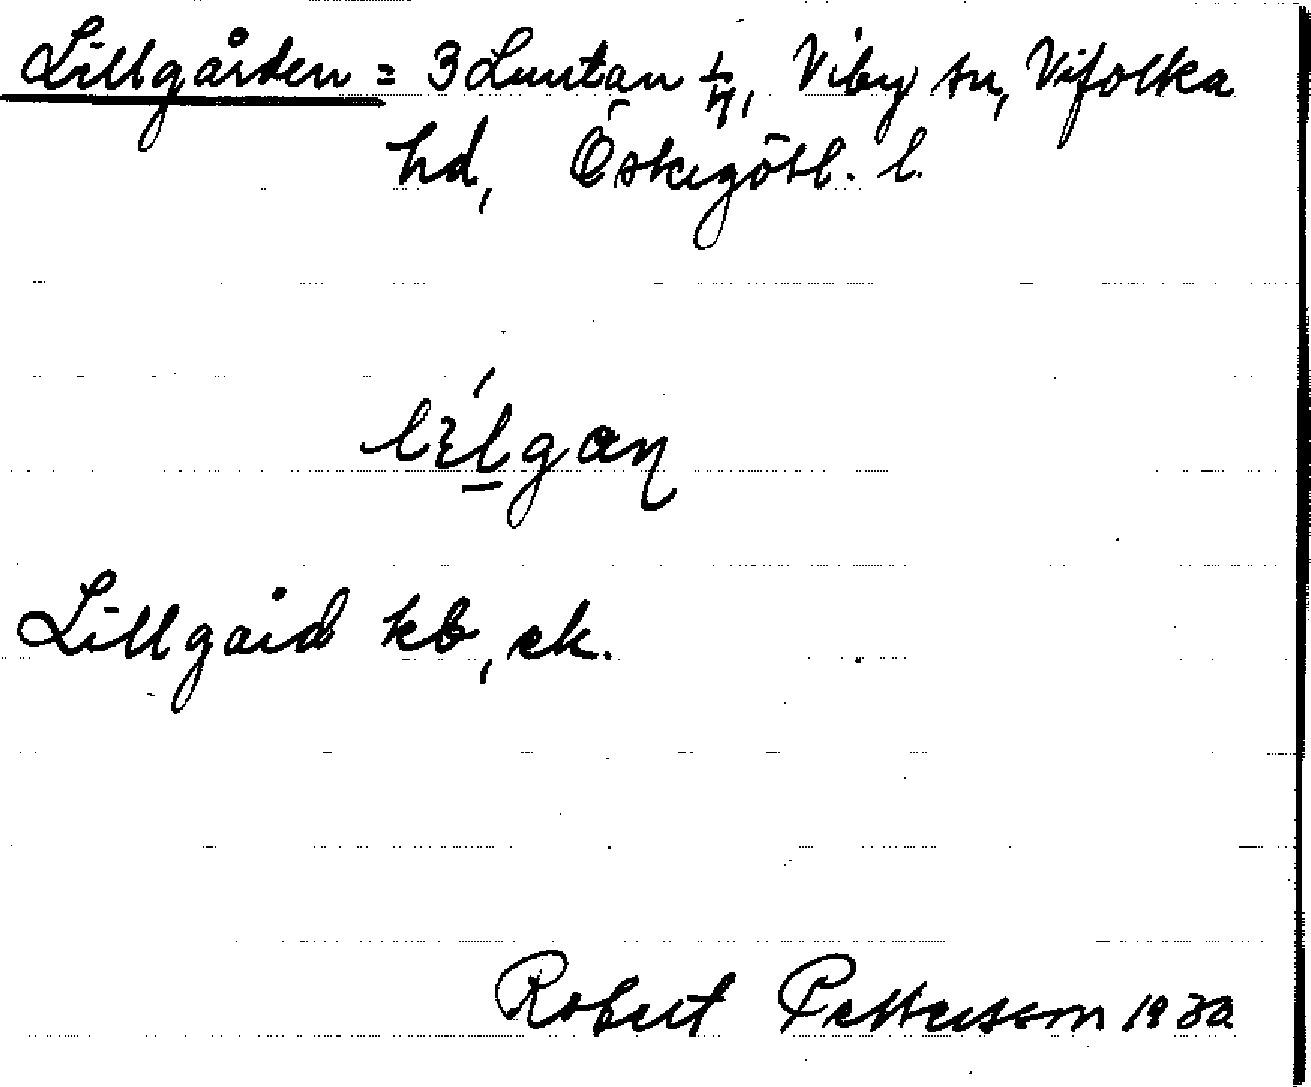 Lillgården = 3 Luntan 1/4, Viby sn, Vifolka
hd, Östergötl. l.
Lillgård kb, ek.
Robert Pettersson 19